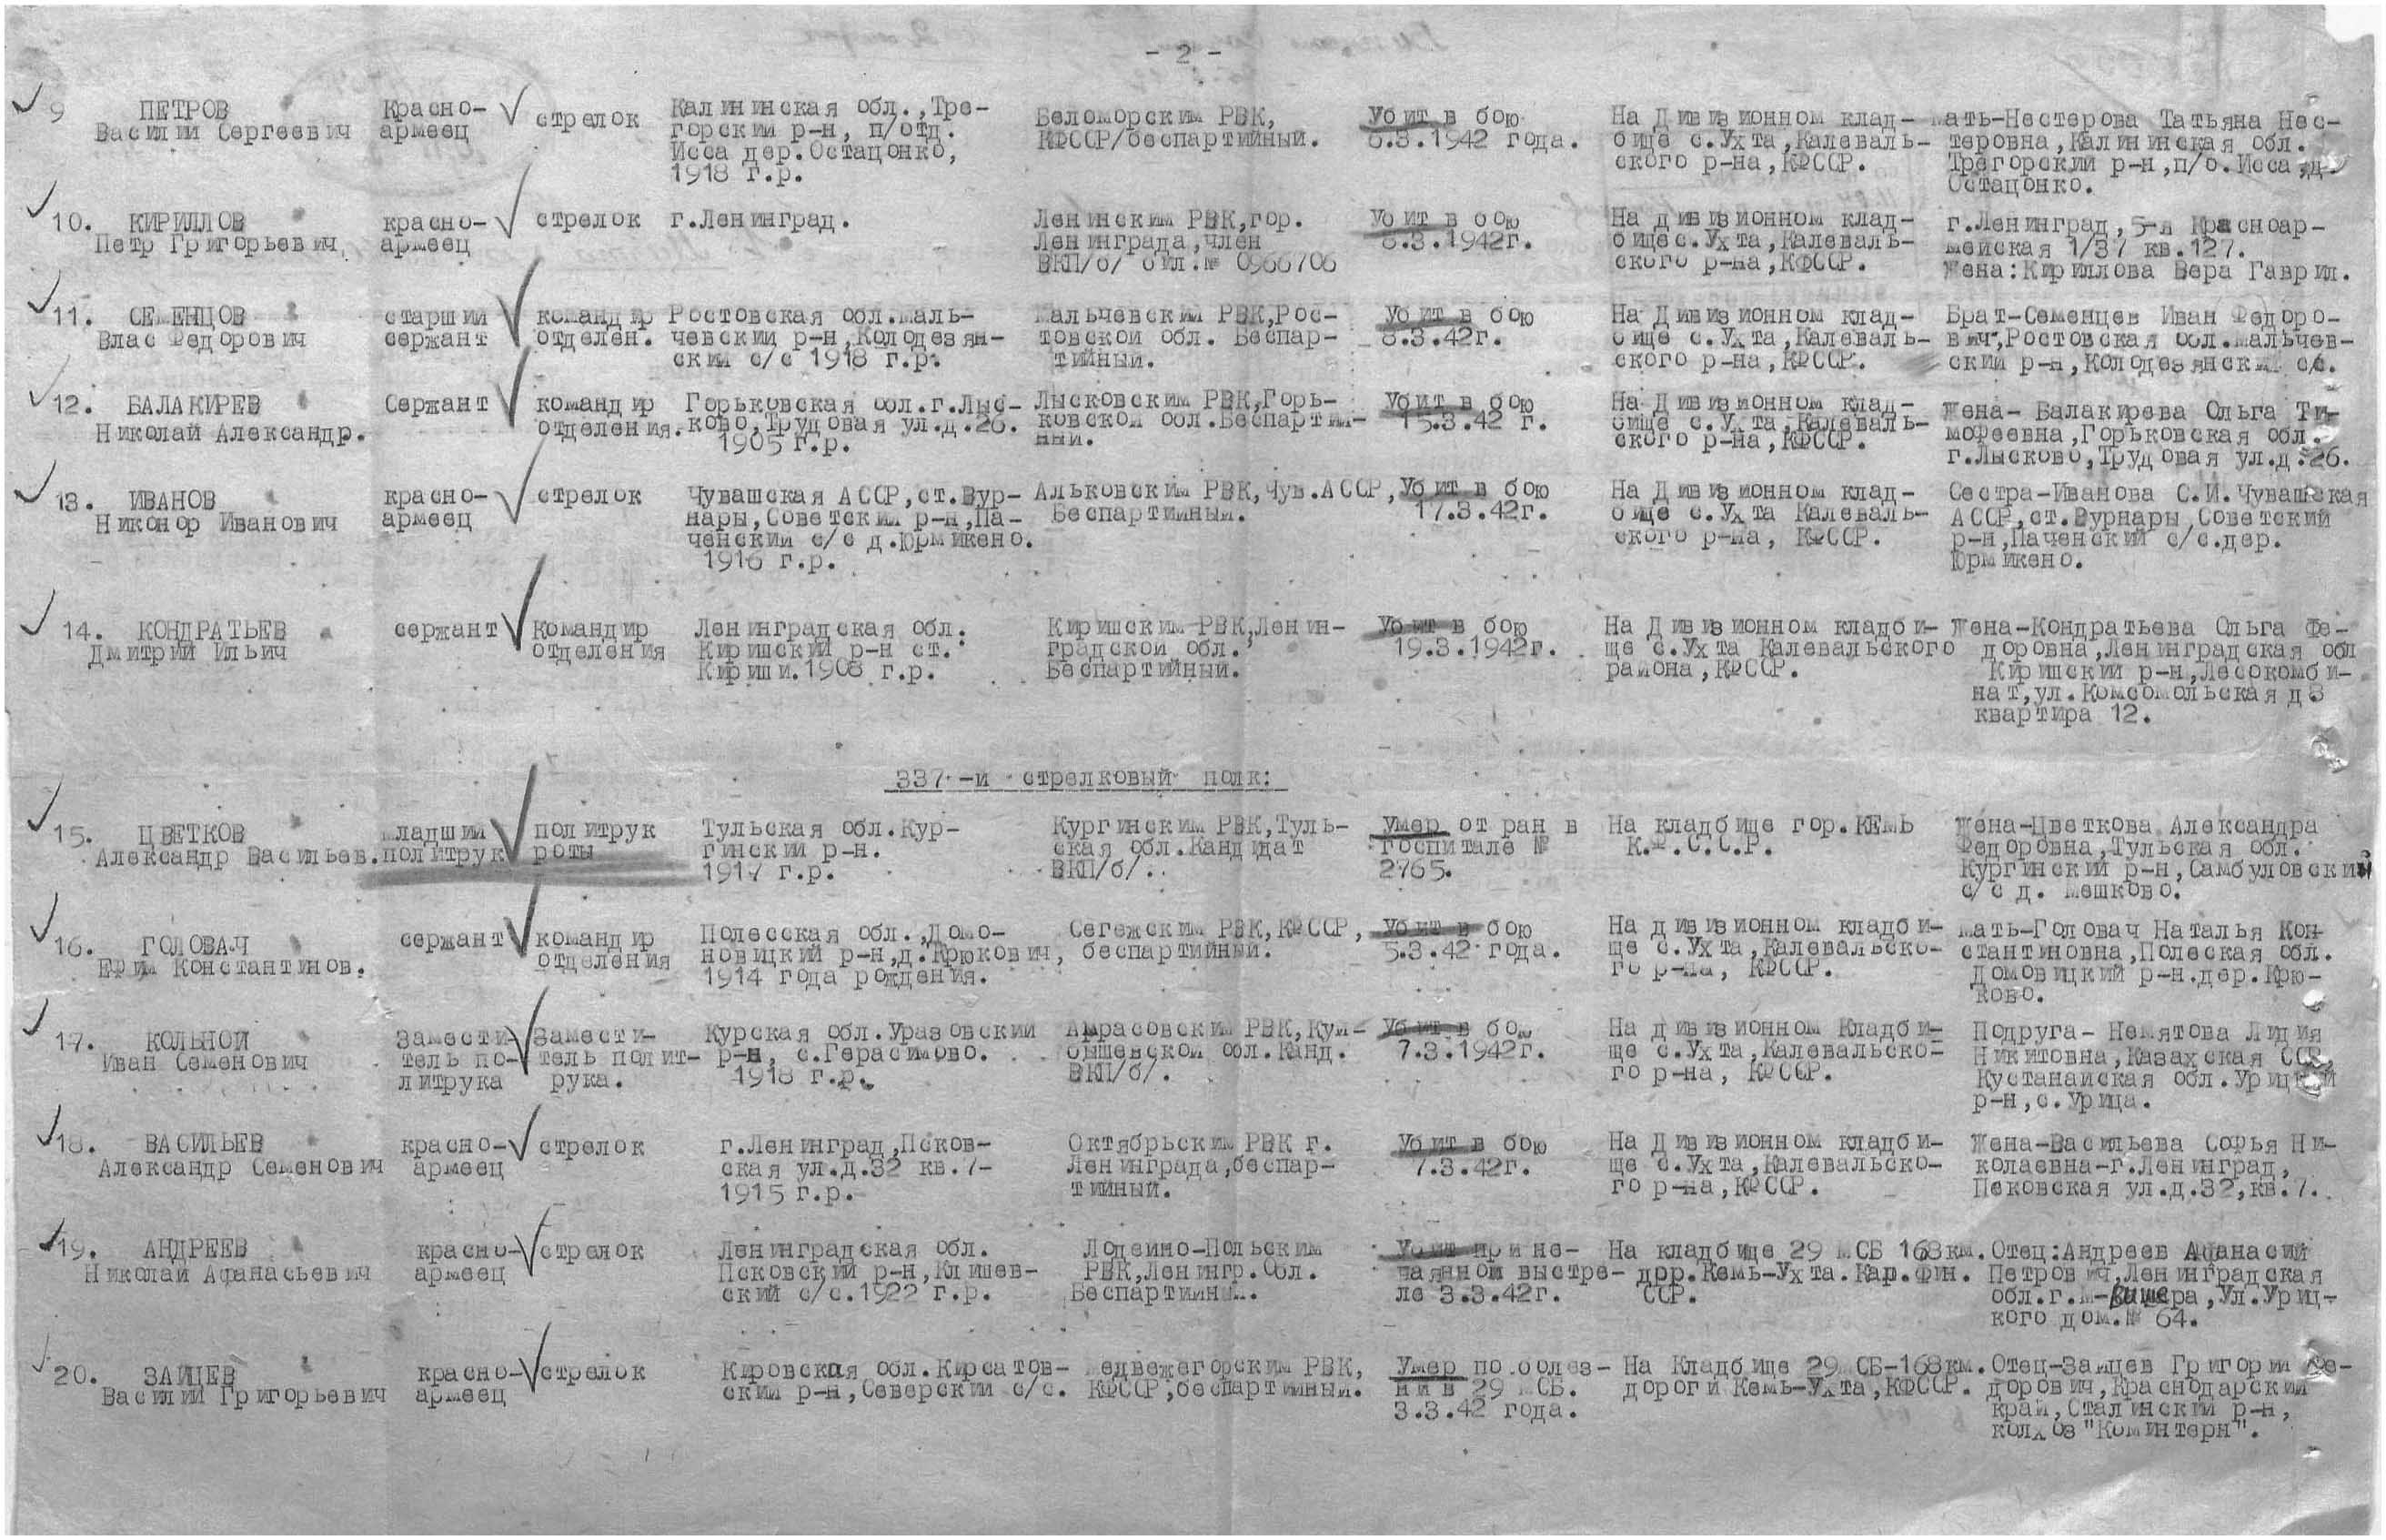 - 2 -
9 ПЕТРОВ
Василий Сергеевич
Красно-
армеец
стрелок
Калининская обл.,Тре-
горский р-н, п/отд.
Исса дер.Остацонко,
1918 г.р.
Беломорским РВК,
КФССР/беспартийный.
Убит в бою
1942 года.
На Дивизионном клад-
бище с.Ухта,Калеваль-
ского р-на,КФССР.
мать-Нестерова Татьяна Нес-
теровна,Калининская обл.
Трегорский р-н,п/о.Исса,д.
Остацонко.
10. КИРИЛЛОВ
Петр Григорьевич
красно-
армеец
стрелок
г.Ленинград.
Ленинским РВК,гор.
Ленинграда,член
ВКП/б/ бил.№ 0966706
Убит в бою
8.3.1942г.
На дивизионном клад-
бище с.Ухта,Калеваль-
ского р-на,КФССР.
г.Ленинград,5-я Красноар-
мейская 1/37 кв.127.
Жена:Кириллова Вера Гаврил.
11. СЕМЕНЦОВ
Влас Федорович
старший
сержант
командир
отделен.
Ростовская обл.Маль-
чевский р-н,Колодезян-
ский с/с 1918 г.р.
Мальчевским РВК,Рос-
товской обл. Беспар-
тийный.
Убит в бою
8.3.42г.
На Дивизионном клад-
бище с.Ухта,Калеваль-
ского р-на,КФССР.
Брат-Семенцев Иван Федоро-
вич,Ростовская обл.Мальчев-
ский р-н,Колодезянский с/с.
12. БАЛАКИРЕВ
Николай Александр.
Сержант
командир
отделения.
Горьковская обл.г.Лыс-
ково,Трудовая ул.д.26.
1905 г.р.
Лысковским РВК,Горь-
ковской обл.Беспартий-
ный.
Убит в бою
15.3.42 г.
На Дивизионном клад-
бище с.Ухта,Калеваль-
ского р-на,КФССР.
Жена- Балакирева Ольга Ти-
мофеевна,Горьковская обл.
г.Лысково,Трудовая ул.д.26.
13. ИВАНОВ
Никонор Иванович
красно-
армеец
стрелок
Чувашская АССР,ст.Вур-
нары,Советский р-н,Па-
ченский с/с д.Юрмикено.
1916 г.р.
Альковским РВК,Чув.АССР,
Беспартийный.
Убит в бою
17.3.42г.
На Дивизионном клад-
бище с.Ухта Калеваль-
ского р-на, КФССР.
Сестра-Иванова С.И.Чувашская
АССР,ст.Вурнары,Советский
р-н,Паченский с/с.дер.
Юрмикено.
14. КОНДРАТЬЕВ
Дмитрий Ильич
сержант
Командир
отделения
Ленинградская обл.
Киришский р-н ст.
Кириши.1908 г.р.
Киришским РВК,Ленин-
градской обл.
Беспартийный.
Убит в бою
19.3.1942г.
На Дивизионном кладби-
ще с.Ухта Калевальского
района,КФССР.
Жена-Кондратьева Ольга Фе-
доровна,Ленинградская обл
Киришский р-н,Лесокомби-
нат,ул.Комсомольская д 3
квартира 12.
337 -й стрелковый полк:
15. ЦВЕТКОВ
Александр Васильев.
младший
политрук
политрук
роты
Тульская обл.Кур-
гинский р-н.
1917 г.р.
Кургинским РВК,Туль-
ская обл.Кандидат
ВКП/б/.
Умер от ран в
госпитале №
2765.
На кладбище гор.КЕМЬ
К.Ф.С.С.Р.
Жена-Цветкова Александра
Федоровна,Тульская обл.
Кургинский р-н,Самбуловский
с/с д. Мешково.
16. ГОЛОВАЧ
Ефим Константинов.
сержант
командир
отделения
Полесская обл.,Домо-
новицкий р-н,д.Крюкович,
1914 года рождения.
Сегежским РВК,КФССР,
беспартийный.
Убит в бою
5.3.42 года.
На дивизионном кладби-
ще с.Ухта,Калевальско-
го р-на, КФССР.
мать-Головач Наталья Кон-
стантиновна,Полеская обл.
Домовицкий р-н.дер.Крю-
ково.
17. КОЛЬНОЙ
Иван Семенович
Замести-
тель по-
литрука
Замести-
тель полит-
рука.
Курская обл.Уразовский
р-н, с.Герасимово.
1918 г.р.
РВК,Куй-
бышевской обл.Канд.
ВКП/б/.
Убит в бою
7.3.1942г.
На дивизионном Кладби-
ще с.Ухта,Калевальско-
го р-на, КФССР.
Подруга- Немятова Лидия
Никитовна,Казахская ССР,
Кустанайская обл.Урицкий
р-н,с.Урица.
18. ВАСИЛЬЕВ
Александр Семенович
красно-
армеец
стрелок
г.Ленинград,Псков-
ская ул.д.32 кв.7-
1915 г.р.
Октябрьским РВК г.
Ленинграда,беспар-
тийный.
Убит в бою
7.3.42г.
На Дивизионном кладби-
ще с.Ухта,Калевальско-
го р-на,КФССР.
Жена-Васильева Софья Ни-
колаевна-г.Ленинград,
Псковская ул.д.32,кв.7.
19. АНДРЕЕВ
Николай Афанасьевич
красно-
армеец
стрелок
Ленинградская обл.
Псковский р-н,Клишев-
ский с/с.1922 г.р.
Лодейно-Польским
РВК,Ленингр.Обл.
Беспартийный.
Убит при не-
чаянном выстре-
ле 3.3.42г.
На кладбище 29 МСБ 168км.
дор.Кемь-Ухта.Кар.Фин.
ССР.
Отец:Андреев Афанасий
Петрович,Ленинградская
обл.г.М-Вишера,Ул.Уриц-
кого дом.№ 64.
20. ЗАЙЦЕВ
Василий Григорьевич
красно-
армеец
стрелок
Кировская обл.Кирсатов-
ский р-н,Северский с/с.
Медвежегорским РВК,
КФССР,беспартийный.
Умер по болез-
ни в 29 МСБ.
3.3.42 года.
На Кладбище 29МСБ-168км.
дороги Кемь-Ухта,КФССР.
Отец-Зайцев Григорий Фе-
дорович,Краснодарский
край,Сталинский р-н,
колхоз "Коминтерн".